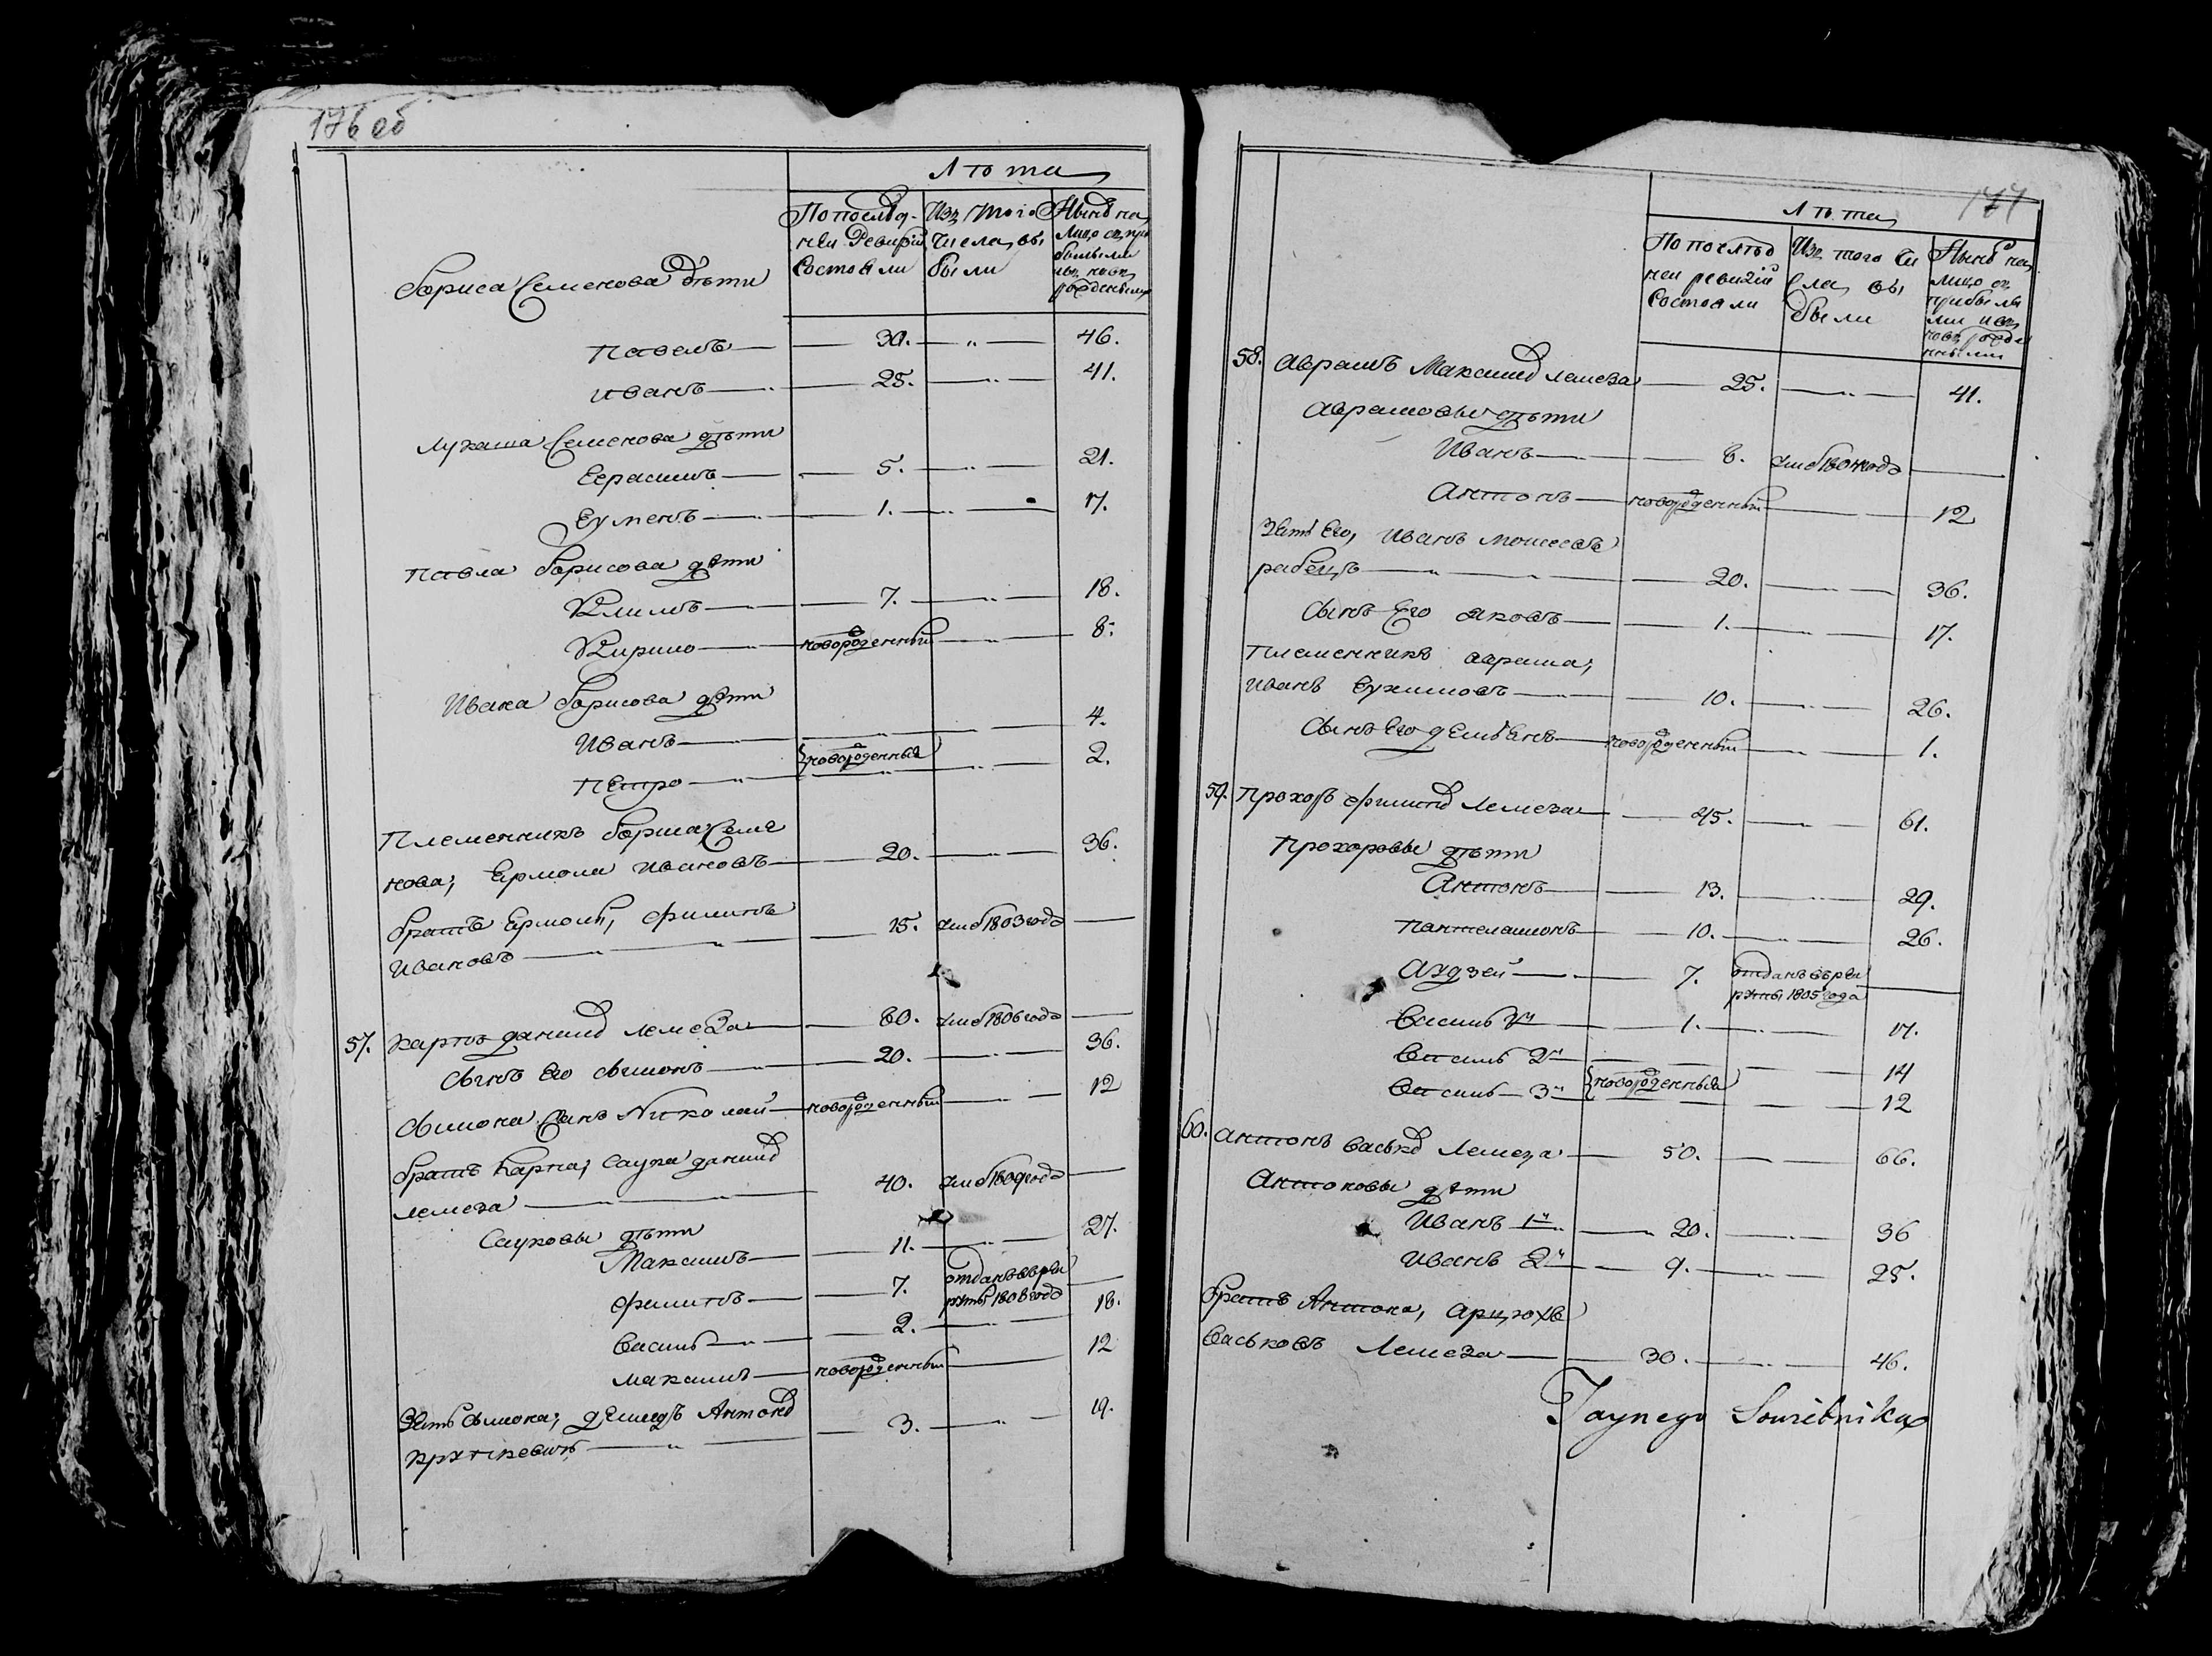 176 об
Лѣта
По послѣд-
ней Ревизіи
Состояли
Изъ того
Числа, вы
были
Нынѣ на
Лицо съ при
былыми
и въ новь
рожденными
Бориса Семенова дѣти
Павелъ 30. 46.
Иванъ 25. 41.
Лукаша Семенова дѣти
Герасимъ 5. 21.
Еуменъ 1. 17.
Павла Борисова дѣти
Климъ 7. 18.
Кирило новорожденный 8.
Ивана Борисова дѣти
Иванъ 4.
новорожденныя
Петро 2.
Племенникъ Бориса Семе
нова, Ермола Ивановъ 20. 36.
братъ Ермолы, Филипъ
Ивановъ 15. умеръ 1803 года
57. Карпъ Данилов Лемеза 60. умеръ 1806 года
Сынъ Его Сымонъ 20. 36.
Сымона Сынъ Николай новорожденный 12
братъ Карпа, Саука Данилов
Лемеза 40. умеръ 1809 года
Сауковы дѣти
Макаимъ 11. 27.
Филипъ 7. отданъ въ рек
руты 1808 года
Василь 2. 18.
Макаимъ новорожденный 12
Зять Сымона, Демидъ Антонов
3. 19.
177
Лѣта
По послѣд
ней ревизіи
Состояли
Изъ того Чи
сла, вы
были
Нынѣ на
лицо съ
прибылы
ми и въ
новь рожде
нными
58. Аврамъ Максимов Лемеза 25. 41.
Аврамовы дѣти
Иванъ 8. умеръ 1804 года
Антонъ новорожденный 12
Зять Его, Иванъ Моисеевъ
рабецъ 20. 36.
Сынъ Его Яковъ 1. 17.
Племенникъ Аврама,
Иванъ Еухимовъ 10. 26.
Сынъ Его Демьянъ новорожденный 1.
59. Прохоръ Филипов Лемеза 45. 61.
Прохоровы дѣти
Антонъ 13. 29.
Пантелаймонъ 10. 26.
Андзей 7. отданъ въ рек
руты 1805 года
Василь 1й 1. 17.
Василь 2й 14
новорожденныя
Василь 3й 12
60. Антонъ Васьков Лемеза 50. 66.
Антоновы дѣти
Иванъ 1й 20. 36
Иванъ 2й 9. 25.
братъ Антона, Арцюхъ
Васьковъ Лемеза 30. 46.